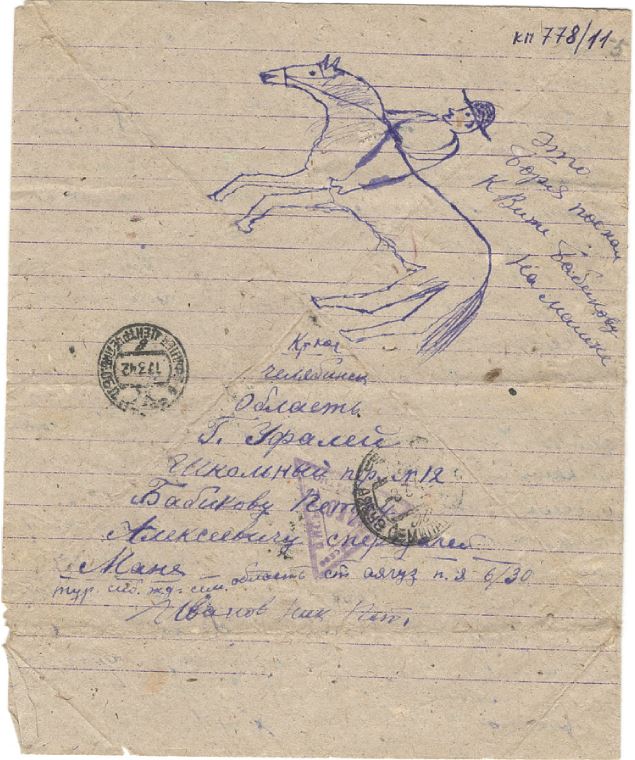 кп 778/11
Это
Боря поехал
К Вите Бабикову
На Малине
Челябинск
Область
Г. Уфалей
Школьный пр. №12
Бабикову Пет
Алексеевичу с передачей
Мане
тур. сиб. жд. сем. область ст аягуз п. я 6/30
Иванов Ник Пет.
17 3 42